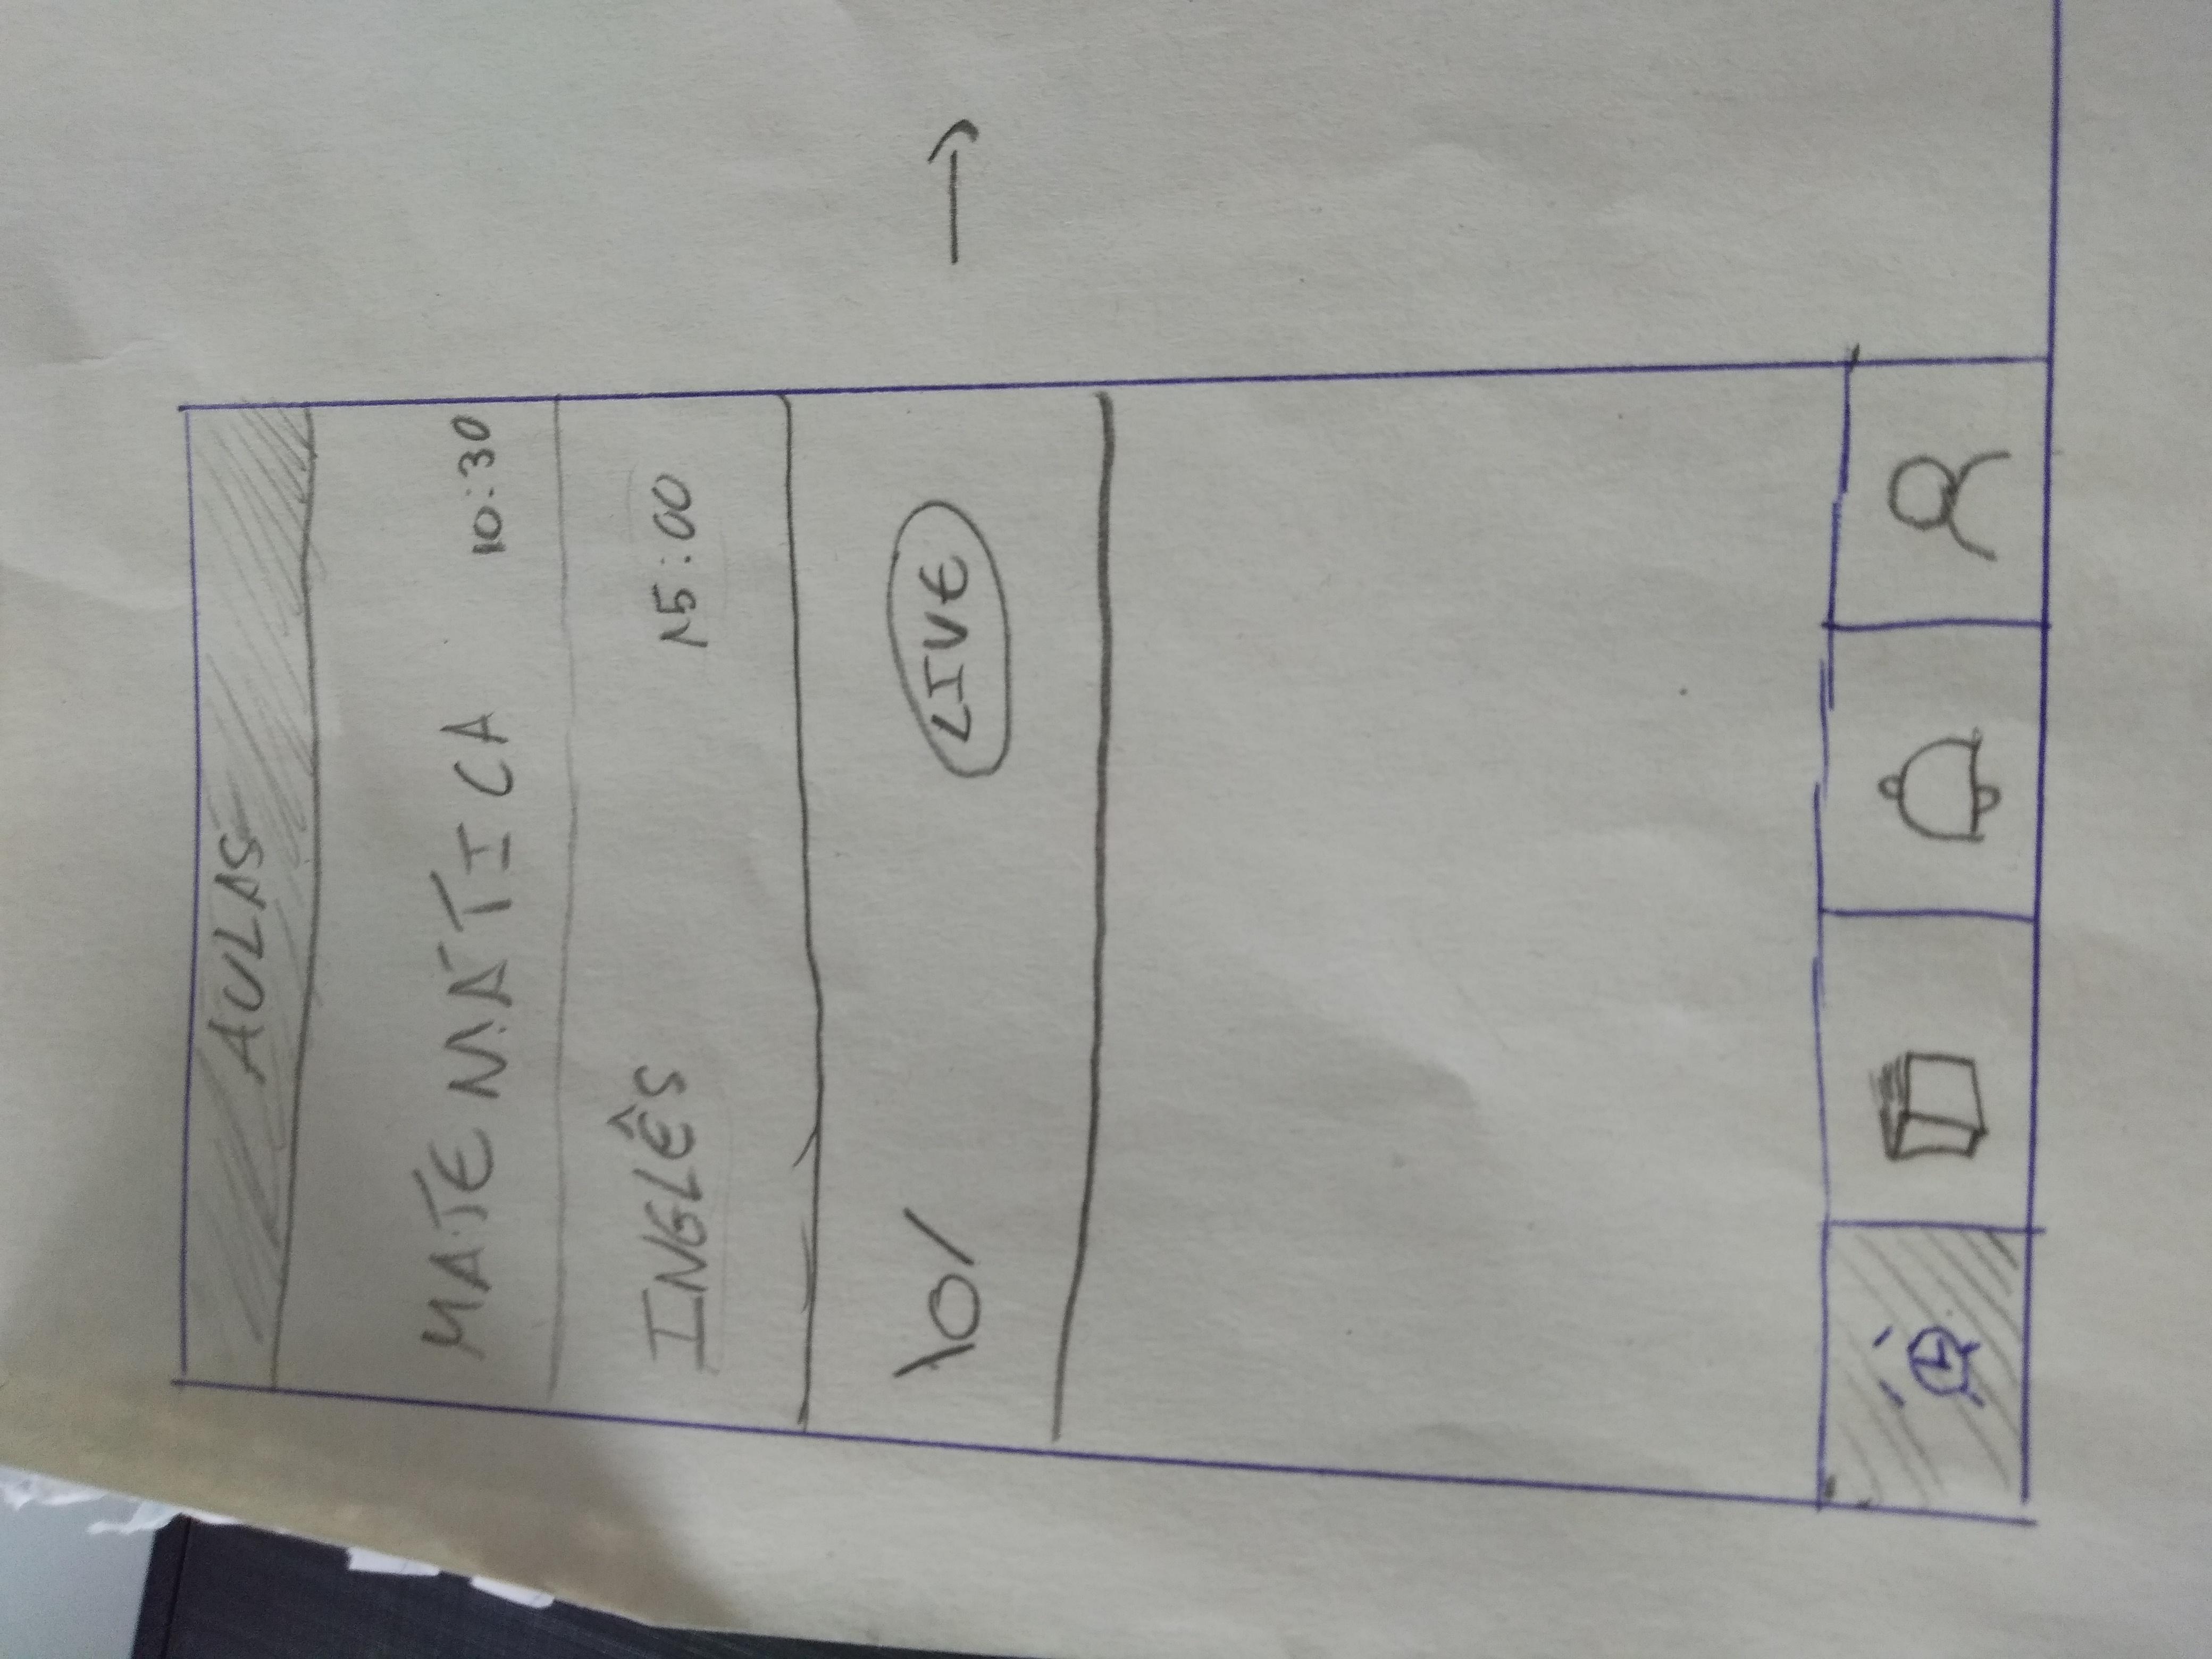 AULAS
MATEMÁTICA 10:30
INGLÊS 15:00
\o/ LIVE